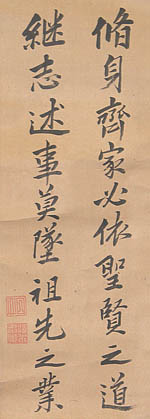 脩身齊家必依聖賢之道
継志述事莫墜祖先之業